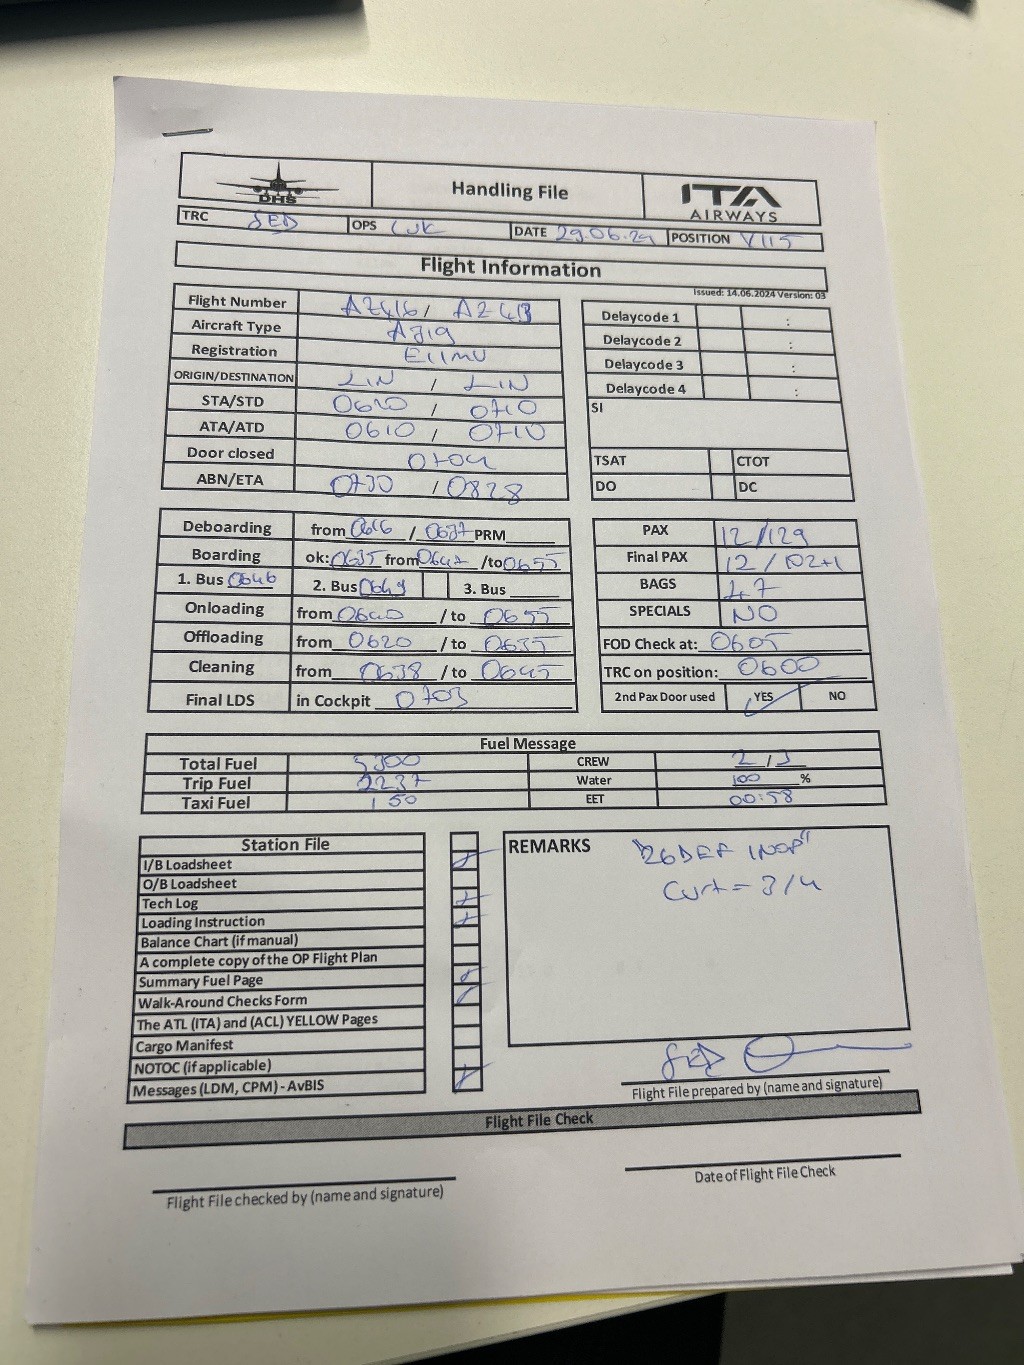 DHS
Handling File
ITA
AIRWAYS
TRC SED OPS LUK DATE 29.06.24 POSITION V115
Flight Information
Issued: 14.06.2024 Version: 03
Flight Number AZ416 / AZ413
Aircraft Type A319
Registration EIIMU
ORIGIN/DESTINATION LIN / LIN
STA/STD 0620 / 0710
ATA/ATD 0610 / 0710
Door closed 0704
ABN/ETA 0730 / 0828
Delaycode 1 :
Delaycode 2 :
Delaycode 3 :
Delaycode 4 :
SI
TSAT CTOT
DO DC
Deboarding from 0616 / 0637 PRM
Boarding ok: 0635 from 0647 /to 0655
1. Bus 0646 2. Bus 0649 3. Bus
Onloading from 0640 / to 0655
Offloading from 0620 / to 0635
Cleaning from 0638 / to 0645
Final LDS in Cockpit 0703
PAX 12/129
Final PAX 12/102+1
BAGS 47
SPECIALS NO
FOD Check at: 0605
TRC on position: 0600
2nd Pax Door used YES NO
Fuel Message
Total Fuel 5300 CREW 2/3
Trip Fuel 2237 Water 100 %
Taxi Fuel 150 EET 00:58
Station File
I/B Loadsheet
O/B Loadsheet
Tech Log
Loading Instruction
Balance Chart (if manual)
A complete copy of the OP Flight Plan
Summary Fuel Page
Walk-Around Checks Form
The ATL (ITA) and (ACL) YELLOW Pages
Cargo Manifest
NOTOC (if applicable)
Messages (LDM, CPM) - AvBIS
REMARKS "26DEF INOP"
Curt = 3/4
SED
Flight File prepared by (name and signature)
Flight File Check
Flight File checked by (name and signature)
Date of Flight File Check